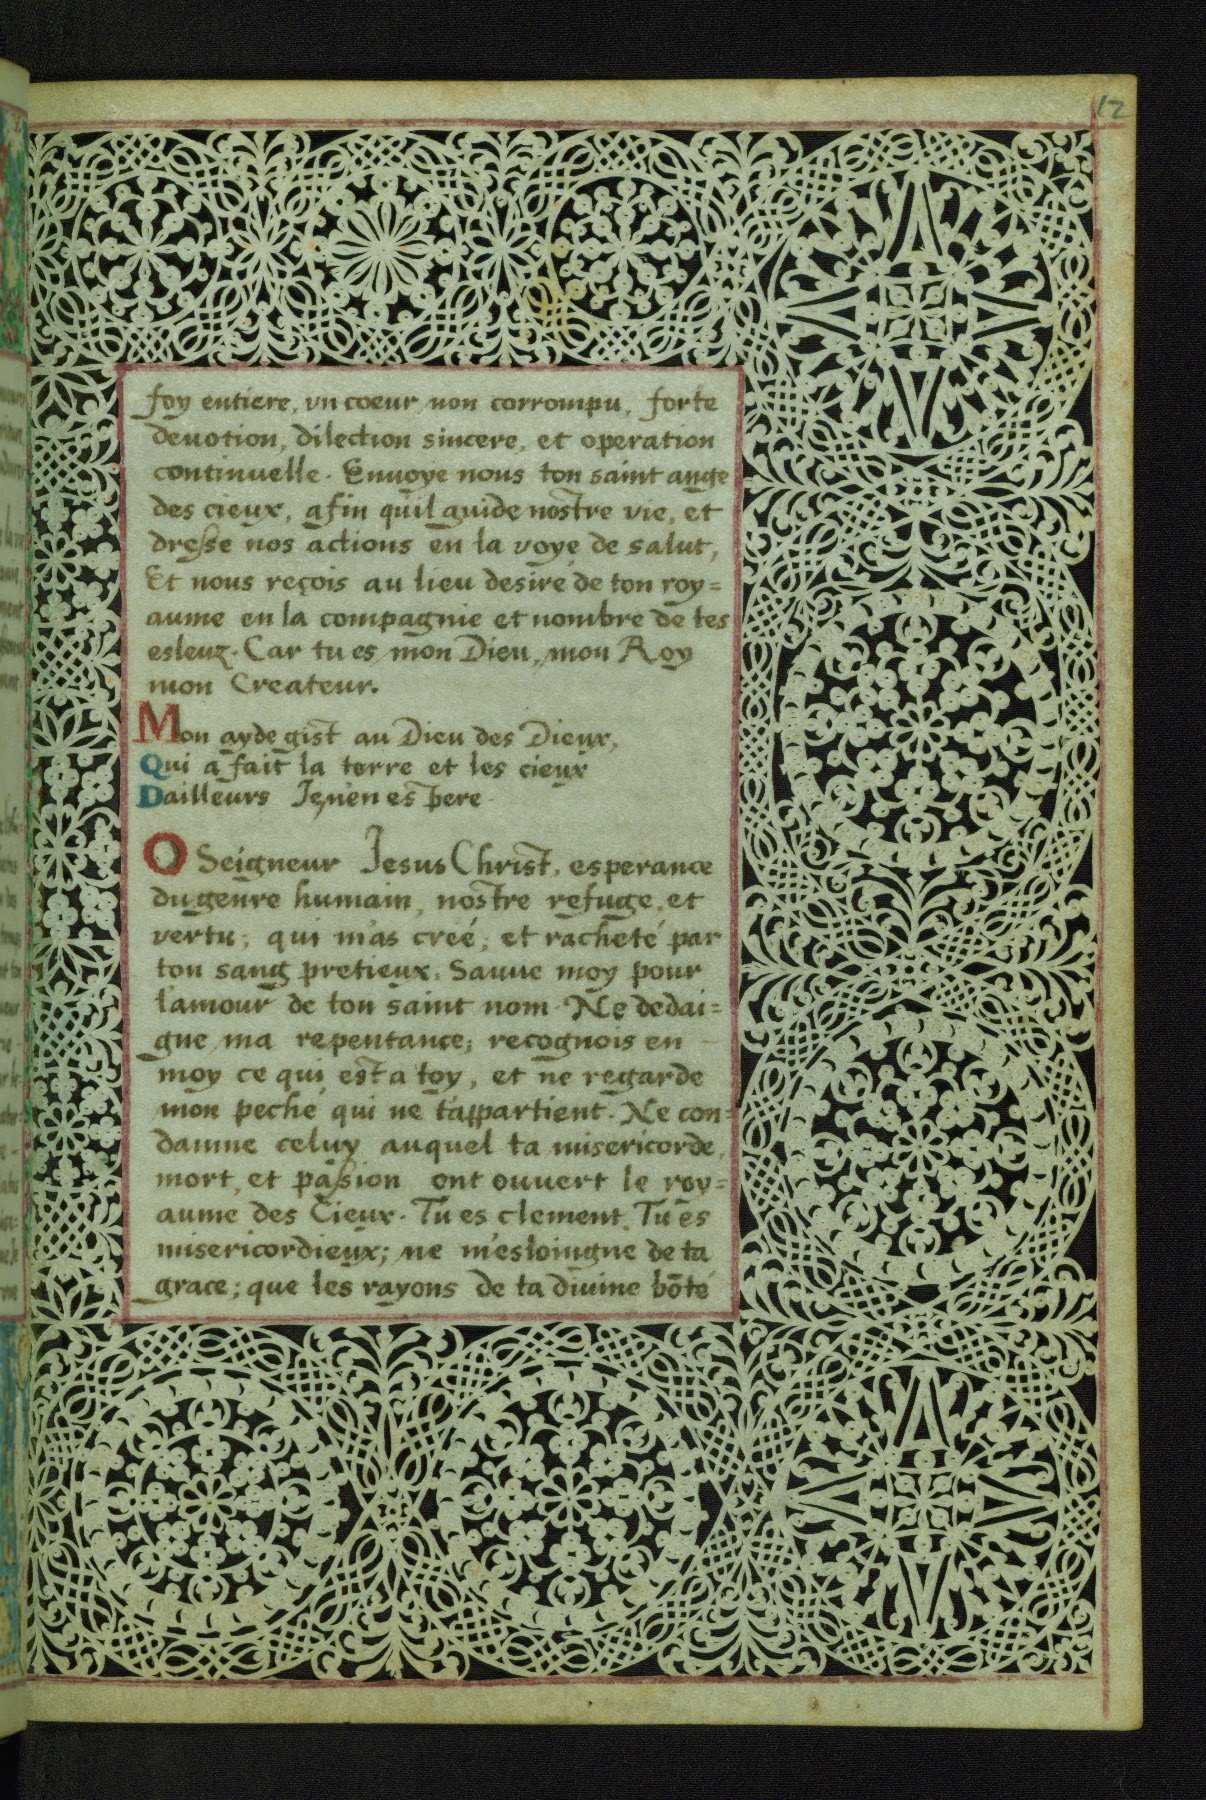 12
foy entiere, vn coeur non corrompu, forte
deuotion, dilection sincere, et operation
continuelle. Enuoye nous ton saint ange
des cieux, afin qu'il guide nostre vie, et
dresse nos actions en la voye de salut,
Et nous reçois au lieu desiré de ton roy=
aume en la compagnie et nombre de tes
esleuz. Car tu es mon Dieu, mon Roy
mon Createur.
Mon ayde gist au Dieu des Dieux,
Qui a fait la terre et les cieux
Dailleurs Je n'en espere.
O Seigneur Jesus Christ, esperance
du genre humain, nostre refuge, et
vertu; qui m'as creé; et racheté par
ton sang pretieux, Sauue moy pour
l'amour de ton saint nom. Ne dedai=
gne ma repentance; recognois en
moy ce qui est a toy, et ne regarde
mon peché qui ne t'appartient. Ne con=
damne celuy auquel ta misericorde,
mort, et passion ont ouuert le roy=
aume des Cieux. Tu es clement, Tu es
misericordieux; ne m'esloingne de ta
grace; que les rayons de ta diuine bōté